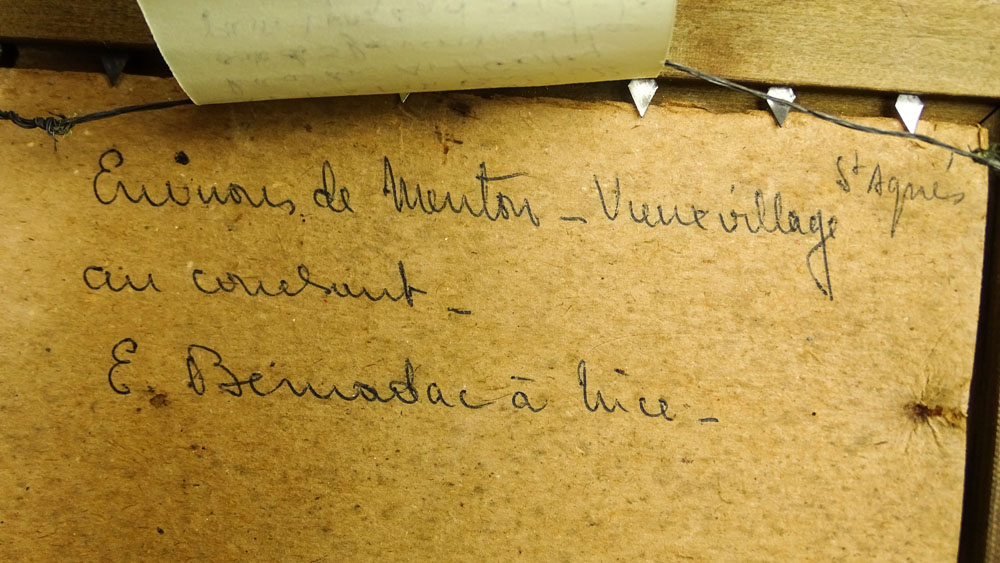 Environs de Menton – Vieux village St Agnès
au couchant –
E. Bernadac à Nice –